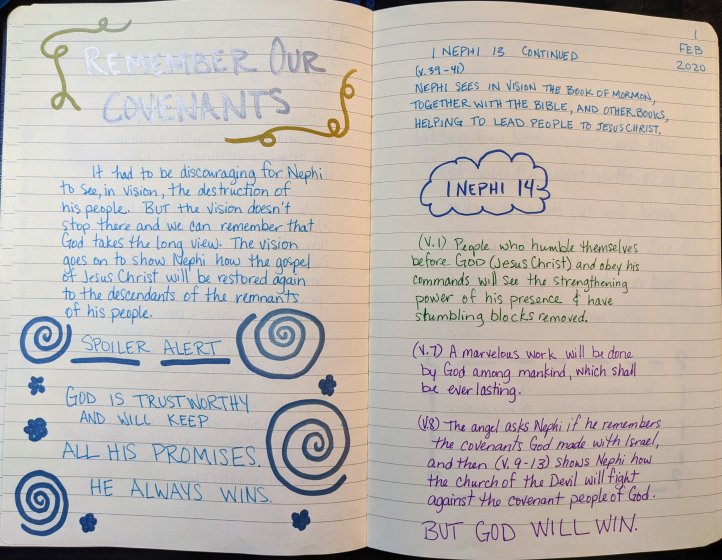 REMEMBER OUR
COVENANTS
It had to be discouraging for Nephi
to see, in vision, the destruction of
his people. BUT the vision doesn't
stop there and we can remember that
God takes the long view. The vision
goes on to show Nephi how the gospel
of Jesus Christ will be restored again
to the descendants of the remnants
of his people.
SPOILER ALERT
GOD IS TRUSTWORTHY
AND WILL KEEP
ALL HIS PROMISES.
HE ALWAYS WINS.
1
FEB
2020
1 NEPHI 13 CONTINUED
(v.39-41)
NEPHI SEES IN VISION THE BOOK OF MORMON,
TOGETHER WITH THE BIBLE, AND OTHER BOOKS,
HELPING TO LEAD PEOPLE TO JESUS CHRIST.
1 NEPHI 14
(V.1) People who humble themselves
before GOD (Jesus Christ) and obey his
commands will see the strengthening
power of his presence & have
stumbling blocks removed.
(V.7) A marvelous work will be done
by God among mankind, which shall
be everlasting.
(V.8) The angel asks Nephi if he remembers
the covenants God made with Israel,
and then (V.9-13) shows Nephi how
the church of the Devil will fight
against the covenant people of God.
BUT GOD WILL WIN.